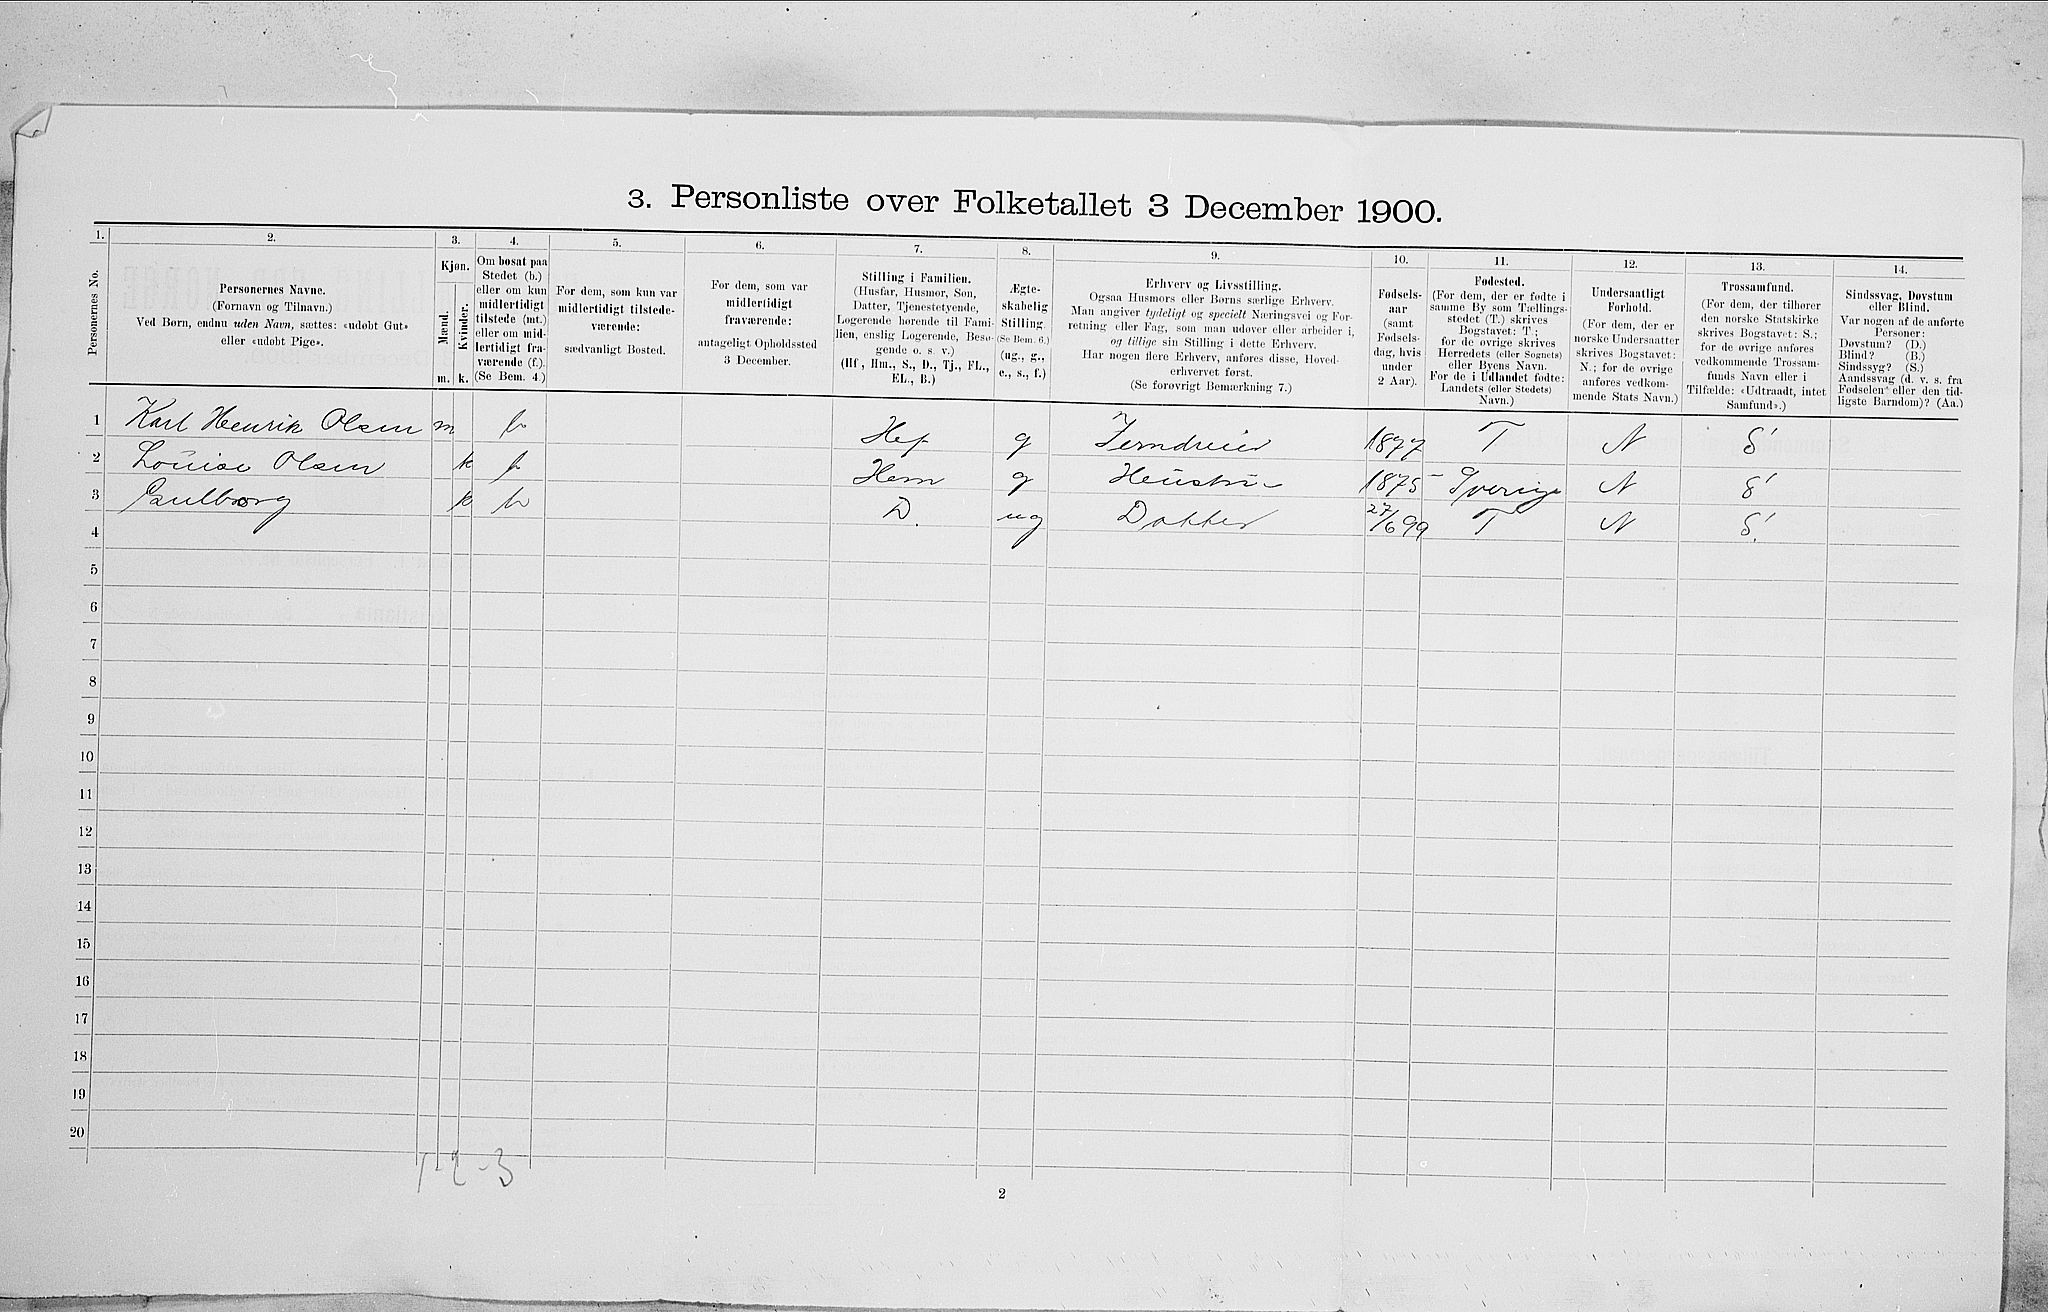 3. Personliste over Folketallet 3 December 1900.
1. 2. 3. 4. 5. 6. 7. 8. 9. 10. 11. 12. 13. 14.
Personernes No.
Personernes Navne.
(Fornavn og Tilnavn.)
Ved Børn, endnu uden Navn, sættes: «udøbt Gut»
eller «udøbt Pige».
Kjøn.
Mænd.
Kvinder.
m. k.
Om bosat paa
Stedet (b.)
eller om kun
midlertidigt
tilstede (mt.)
eller om mid-
lertidigt fra-
værende (f.).
(Se Bem. 4.)
For dem, som kun var
midlertidigt tilstede-
værende:
sædvanligt Bosted.
For dem, som var
midlertidigt
fraværende:
antageligt Opholdssted
3 December.
Stilling i Familien.
(Husfar, Husmor, Søn,
Datter, Tjenestetyende,
Logerende hørende til Fami-
lien, enslig Logerende, Besø-
gende o. s. v.)
(Hf., Hm., S., D., Tj., FL.,
EL., B.)
Ægte-
skabelig
Stilling.
(Se Bem. 6.)
(ug., g.,
e., s., f.)
Erhverv og Livsstilling.
Ogsaa Husmors eller Børns særlige Erhverv.
Man angiver tydeligt og specielt Næringsvei og For-
retning eller Fag, som man udøver eller arbeider i,
og tillige sin Stilling i dette Erhverv.
Har nogen flere Erhverv, anføres disse, Hoved-
erhvervet først.
(Se forøvrigt Bemærkning 7.)
Fødsels-
aar
(samt
Fødsels-
dag, hvis
under
2 Aar).
Fødested.
(For dem, der er fødte i
samme By som Tællings-
stedet (T.) skrives
Bogstavet: T.;
for de øvrige skrives
Herredets (eller Sognets)
eller Byens Navn.
For de i Udlandet fødte:
Landets (eller Stedets)
Navn.)
Undersaatligt
Forhold.
(For dem, der er
norske Undersaatter
skrives Bogstavet:
N.; for de øvrige
anføres vedkom-
mende Stats Navn.)
Trossamfund.
(For dem, der tilhører
den norske Statskirke
skrives Bogstavet: S.;
for de øvrige anføres
vedkommende Trossam-
funds Navn eller i
Tilfælde: «Udtraadt, intet
Samfund».)
Sindssvag, Døvstum
eller Blind.
Var nogen af de anførte
Personer:
Døvstum? (D.)
Blind? (B.)
Sindssyg? (S.)
Aandssvag (d. v. s. fra
Fødselen eller den tid-
ligste Barndom)? (Aa.)
1 Karl Henrik Olsen m b Hf g Jerndreier 1877 T N S
2 Louise Olsen k b Hm g Hustru 1875 Sverige N S
3 Gulborg k b D. ug Datter 27/6 99 T N S.
4
5
6
7
8
9
10
11
12
13
14
15
16
17
18
19
20
1-2-3
2